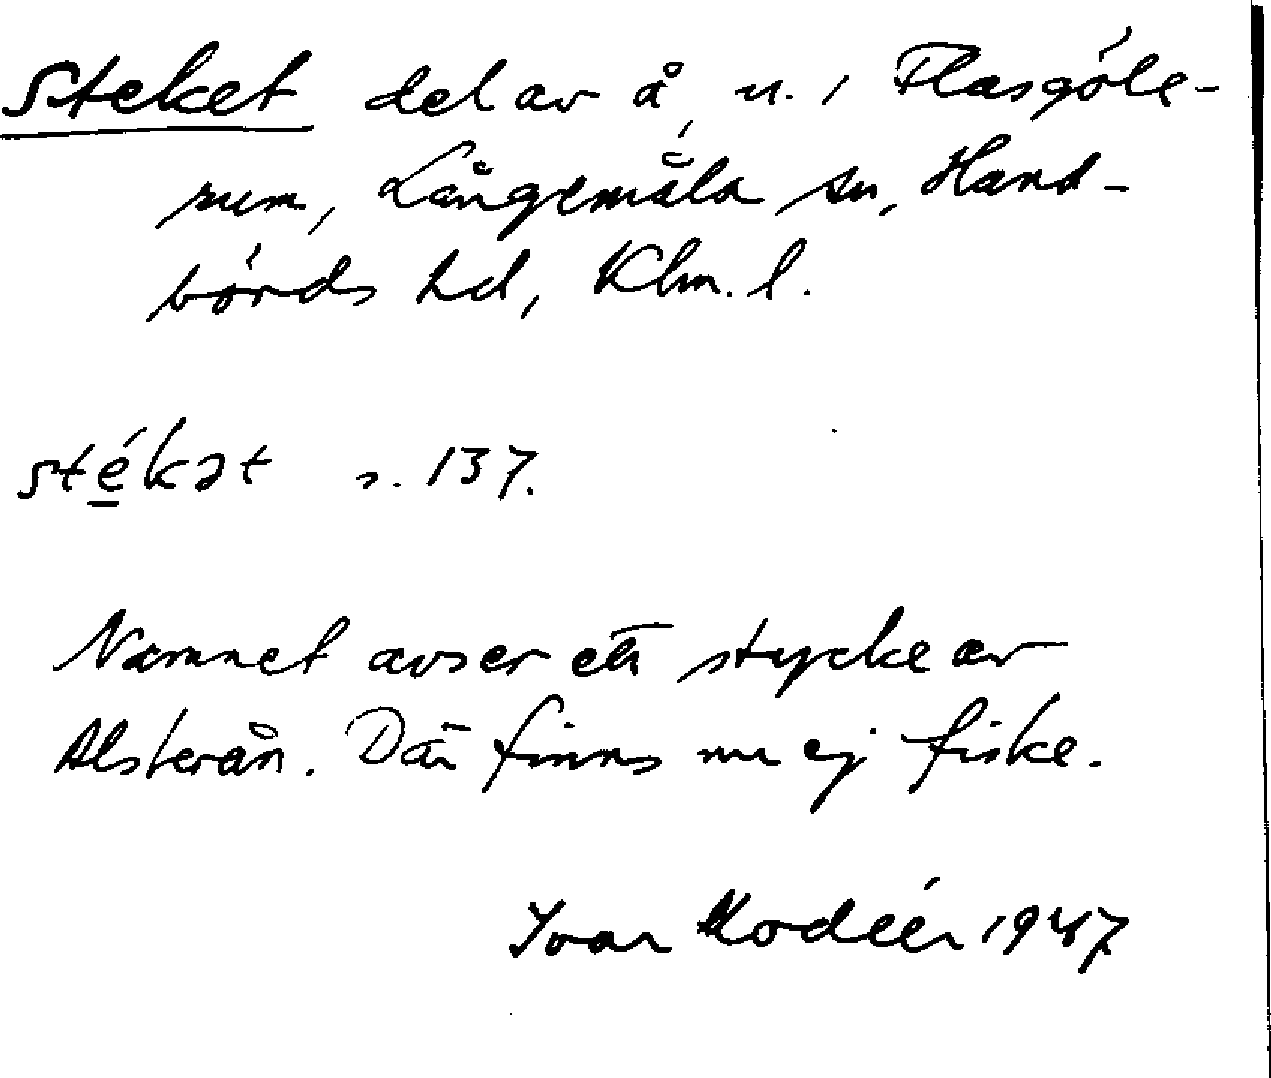 Steket del av å, u. i Flasgöle-
rum, Långemåla sn, Hand-
börds hd, Klm. l.
stékət s. 137.
Namnet avser ett stycke av
Alsterån. Där finns nu ej fiske.
Ivar Modéer 1947